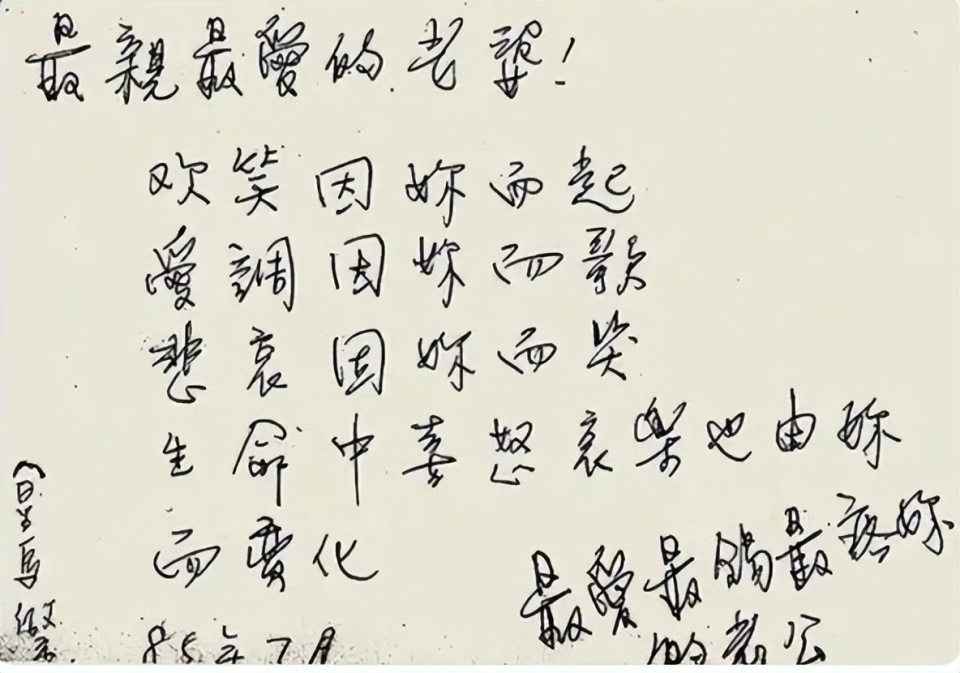 最親最愛的老婆!
欢笑因妳而起
愛調因妳而歌
悲哀因妳而哭
生命中喜怒哀樂也由妳
而變化
最愛最最疼妳
的老公
85年7月